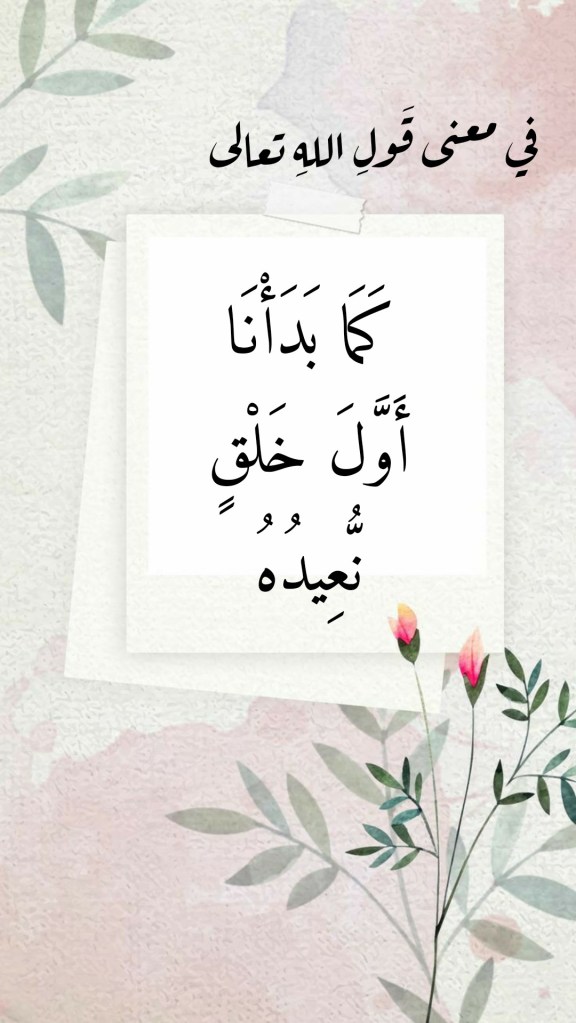 في معنى قَولِ اللهِ تعالى
كَمَا بَدَأْنَا
أَوَّلَ خَلْقٍ
نُّعِيدُهُ